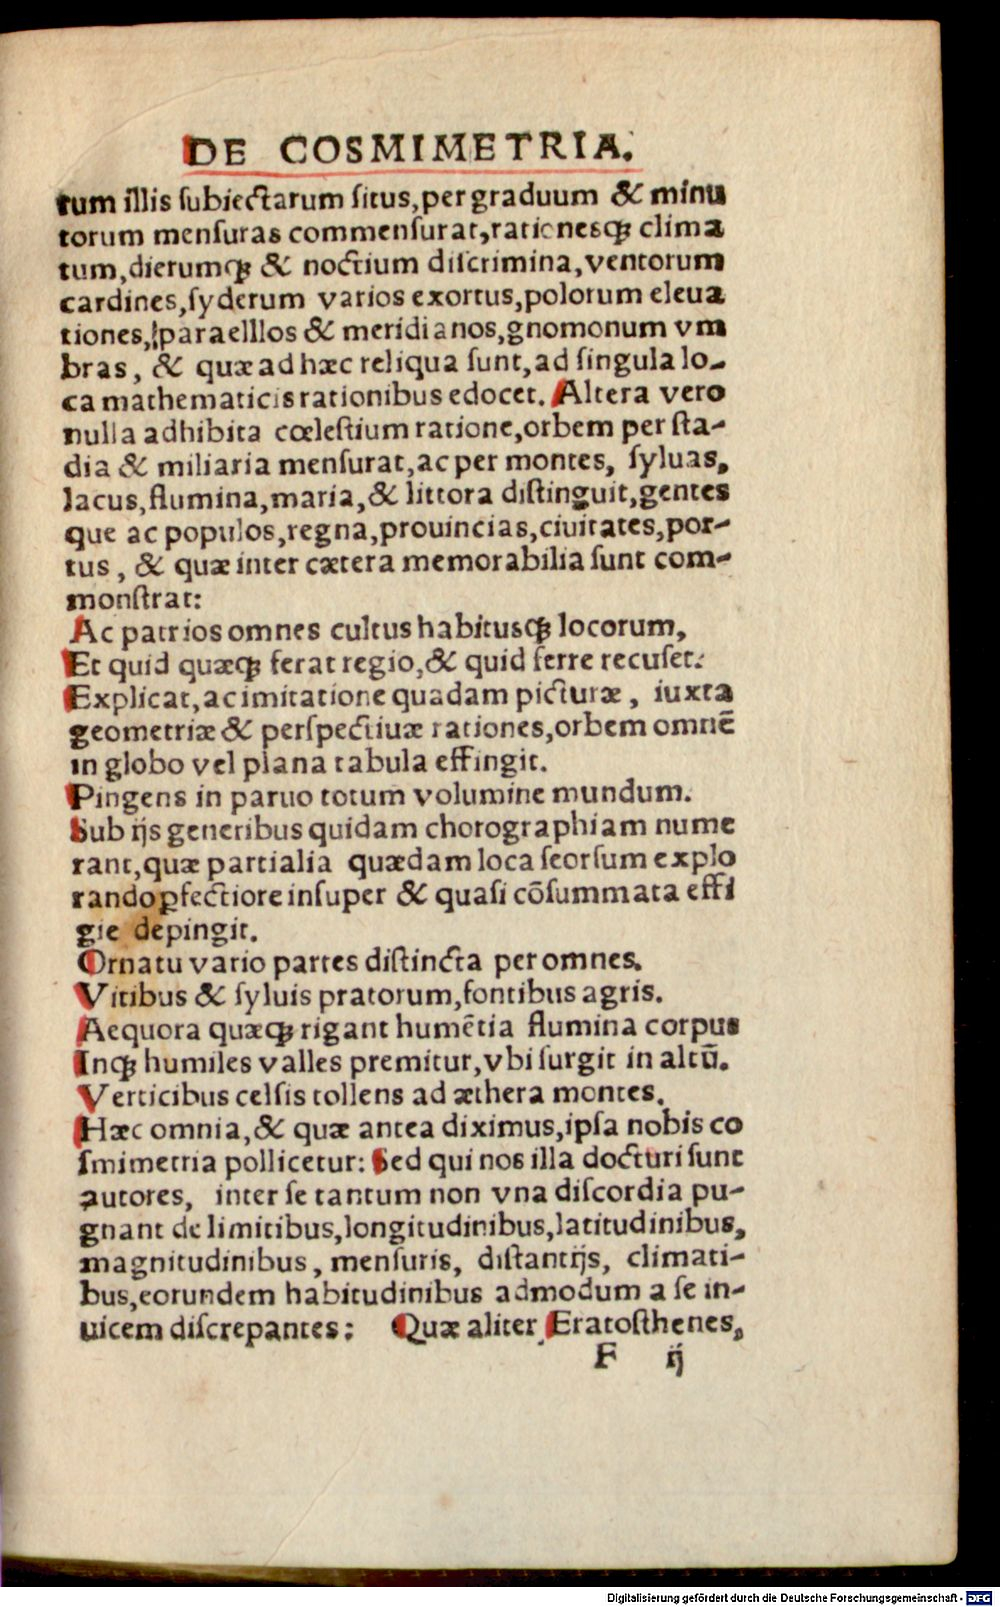 DE COSMIMETRIA.
rum illis subiectarum situs, per graduum & minu
torum mensuras commensurat, rationesqꝫ clima
tum, dierumqꝫ & noctium discrimina, ventorum
cardines, syderum varios exortus, polorum eleua
tiones, paraelllos & meridianos, gnomonum vm
bras, & quæ ad hæc reliqua sunt, ad singula lo-
ca mathematicis rationibus edocet. Altera vero
nulla adhibita cœlestium ratione, orbem per sta-
dia & miliaria mensurat, ac per montes, syluas,
lacus, flumina, maria, & littora distinguit, gentes
que ac populos, regna, prouincias, ciuitates, por-
tus, & quæ inter cætera memorabilia sunt com-
monstrat:
Ac patrios omnes cultus habitusqꝫ locorum,
Et quid quæqꝫ ferat regio, & quid ferre recuset:
Explicat, ac imitatione quadam picturæ, iuxta
geometriæ & perspectiuæ rationes, orbem omnē
in globo vel plana tabula effingit.
Pingens in paruo totum volumine mundum.
Sub ijs generibus quidam chorographiam nume
rant, quæ partialia quædam loca seorsum explo
rando ꝑfectiore insuper & quasi cōsummata effi
gie depingit.
Ornatu vario partes distincta per omnes.
Vitibus & syluis pratorum, fontibus agris.
Aequora quæqꝫ rigant humētia flumina corpus
Inqꝫ humiles valles premitur, vbi surgit in altū.
Verticibus celsis tollens ad æthera montes.
Hæc omnia, & quæ antea diximus, ipsa nobis co
smimetria pollicetur: Sed qui nos illa docturi sunt
autores, inter se tantum non vna discordia pu-
gnant de limitibus, longitudinibus, latitudinibus,
magnitudinibus, mensuris, distantijs, climati-
bus, eorundem habitudinibus admodum a se in-
uicem discrepantes: Quæ aliter Eratosthenes,
F ij
Digitalisierung gefördert durch die Deutsche Forschungsgemeinschaft - DFG